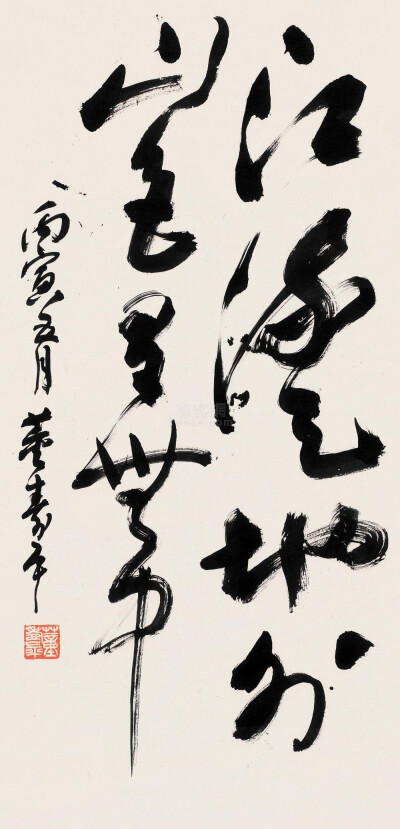 江流天地外
山色有無中
丙寅五月 董寿平
董壽平